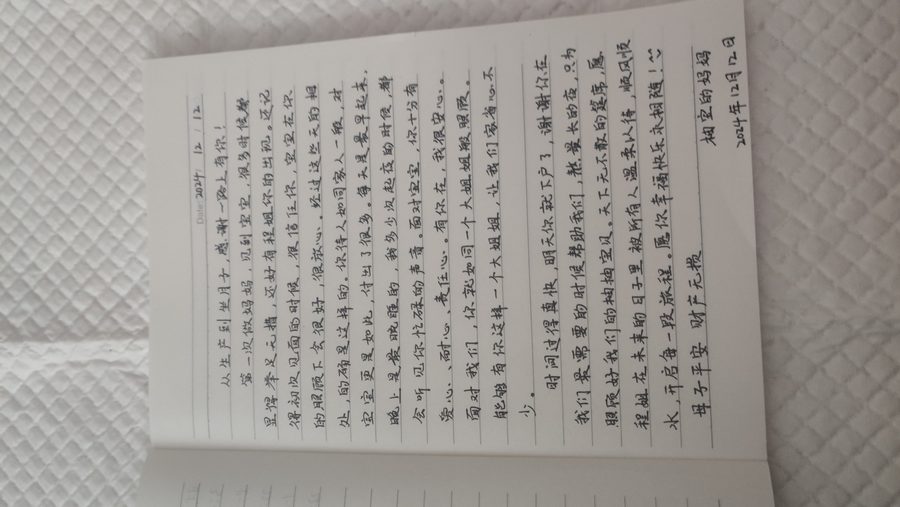 Date: 2024 / 12 / 12
从生产到坐月子，感谢一路上有你！
第一次做妈妈，见到宝宝，很多时候都
显得举足无措，还好有程姐你的出现。还记
得初次见面的时候，很信任你，宝宝在你
的照顾下会很好，很放心。经过这些天的相
处，的确是这样的。你待人如同家人一般，对
宝宝更是如此，付出了很多。每天是最早起来，
晚上是最晚睡的，我多少次起夜的时候，都
会听见你忙碌的声音。面对宝宝，你十分有
爱心、耐心、责任心。有你在，我很安心。
面对我们，你就如同一个大姐姐般照顾。
能够有你这样一个大姐姐，让我们家省心不
少。
时间过得真快，明天你就下户了，谢谢你在
我们最需要的时候帮助我们，熬最长的夜，只为
照顾好我们的柚柚宝贝。天下无不散的筵席，愿
程姐在未来的日子里被所有人温柔以待，顺风顺
水，开启每一段旅程。愿你幸福快乐永相随！
母子平安 财产无损
柚宝的妈妈
2024年12月12日